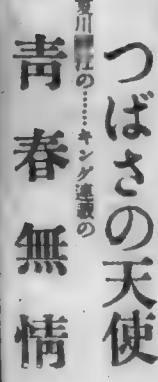 つばさの天使
の……キング連載の
青春無情